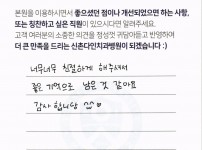 본원을 이용하시면서 좋으셨던 점이나 개선되었으면 하는 사항,
또는 칭찬하고 싶은 직원이 있으시다면 알려주세요.
고객 여러분의 소중한 의견을 정성껏 귀담아듣고 반영하여
더 큰 만족을 드리는 신촌다인치과병원이 되겠습니다 :)
너무너무 친절하게 해주셔서
좋은 기억으로 남은 것 같아요
감사합니당